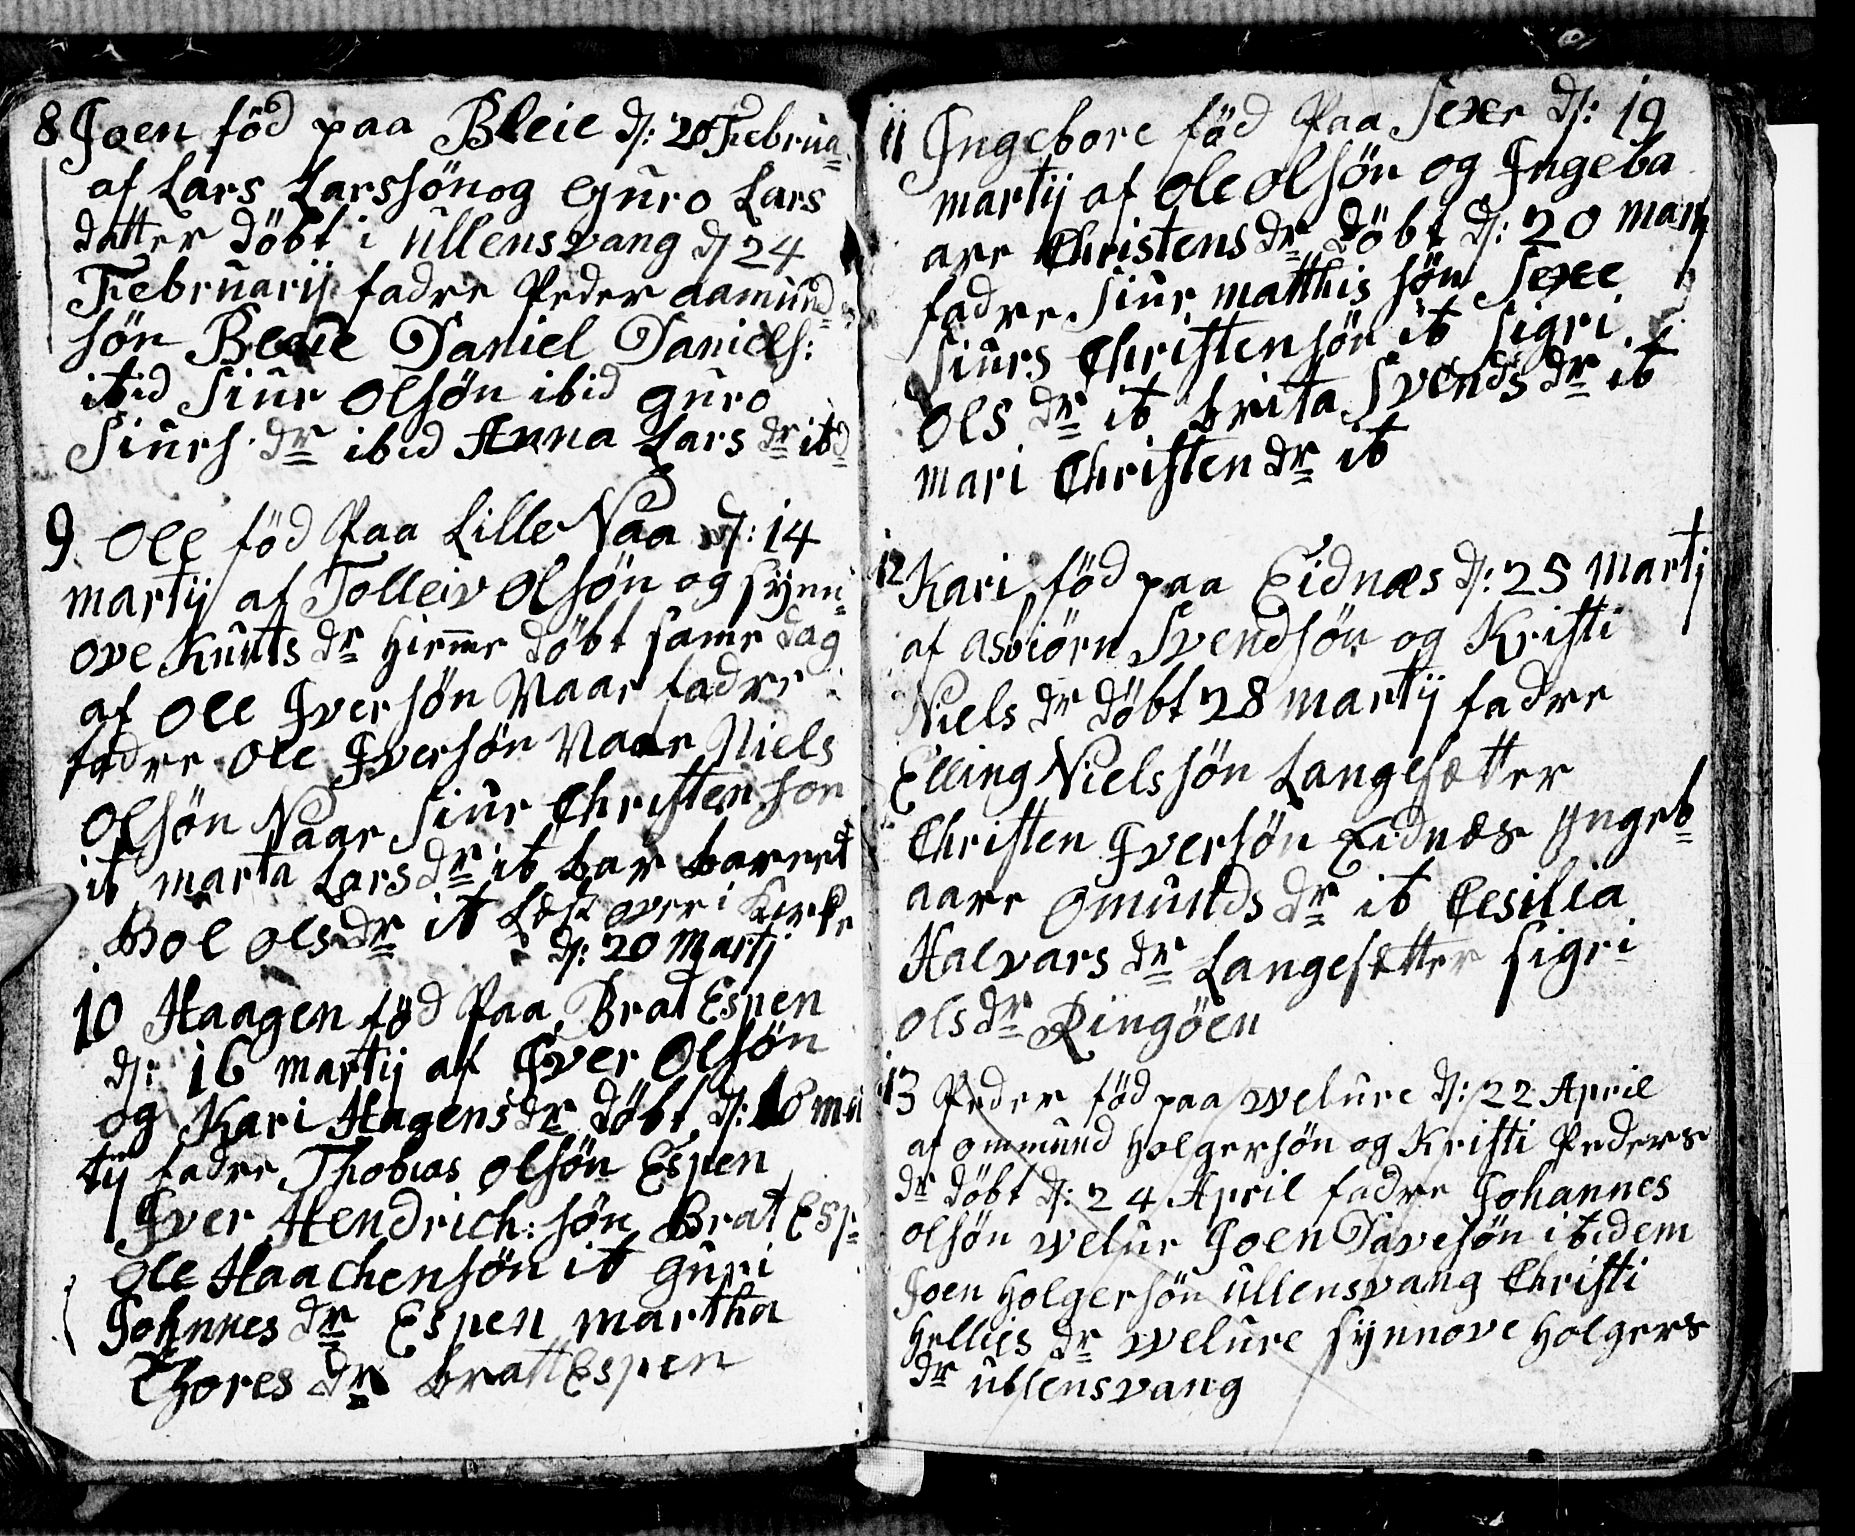 8 Joen föd paa Bleie dſ: 20 Februa=
af Lars Larssön og Guro Lars
datter döbt i ullensvang dſ 24
Februarij fadre Peder aamund=
sön Bleie Daniel Daniels:
ibid Siur Olsön ibid guro
Siurs dr ibid Anna Lars dr ibd
9 Ole föd Paa Lille Naa dſ: 14
martij af Tolleiv Olsön og synn=
ove Knuts dr hieme döbt same dag
af Ole Iversön Naar fadre
fadre Ole Iversön Naar Niels
Olsön Naar Siur Christensön
ib marta Lars dr ib bar barnet
Bol Ols dr ib Læst over i kirke
dſ: 20 Martj
10 Haagen föd Paa Brat Espen
dſ: 16 martij af Iver Olsön
og Kari Hagens dr döbt dſ: mar
tij fadre Thobias Olsön Espen
Iver Hendrich: sön Brat Esp=
Ole Haachensön ib guri
Johnnes dr Espen martha
Thores dr bratt Espen
11 Ingebore föd Paa Sexe dſ: 19
martij af Ole Olsön og Ingeba
are Christens dr döbt dſ: 20 mart
fadre Siur matthis sön Sexe
Siurs Christensön ib Sigri
Ols dr ib brita Svends dr ib
mari Christen dr ib
12 Kari föd paa Eidnæs dſ: 25 Martj
af asbiörn Svendsön og Kristi
Niels dr döbt 28 martij fadre
Elling Nielssön Langesætter
Christen Iversön Eidnæs Ingeb=
aare Omunds dr ib Cesilia
Halvars dr Langesætter sigri
Ols dr Ringöen
13 Peder föd paa welure dſ: 22 April
af ommund Holgersön og Kristi Peders
dr döbt dſ: 24 April fadre Johannes
olsön welur Joen Davesön ibidem
Joen Holgersön ullensvang Christi
Hellies dr welure synnove Holgers
dr ullensvang